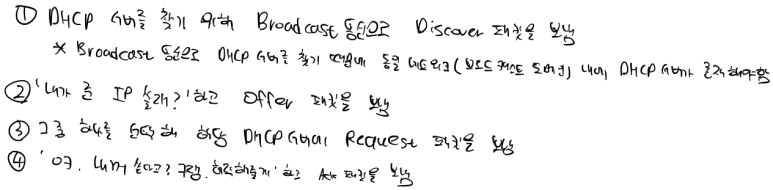 ① DHCP 서버를 찾기 위해 Broadcast 통신으로 Discover 패킷을 보냄
* Broadcast 통신으로 DHCP 서버를 찾기 때문에 동일 네트워크(브로드 캐스트 도메인) 내에 DHCP 서버가 존재해야함
② '내가 준 IP 쓸래?' 하고 Offer 패킷을 보냄
③ 그중 하나를 선택해 해당 DHCP 서버에 Request 패킷을 보냄
④ 'ㅇㅋ. 내꺼 쓴다고? 그럼. 허락해줄게' 하고 Ack 패킷을 보냄